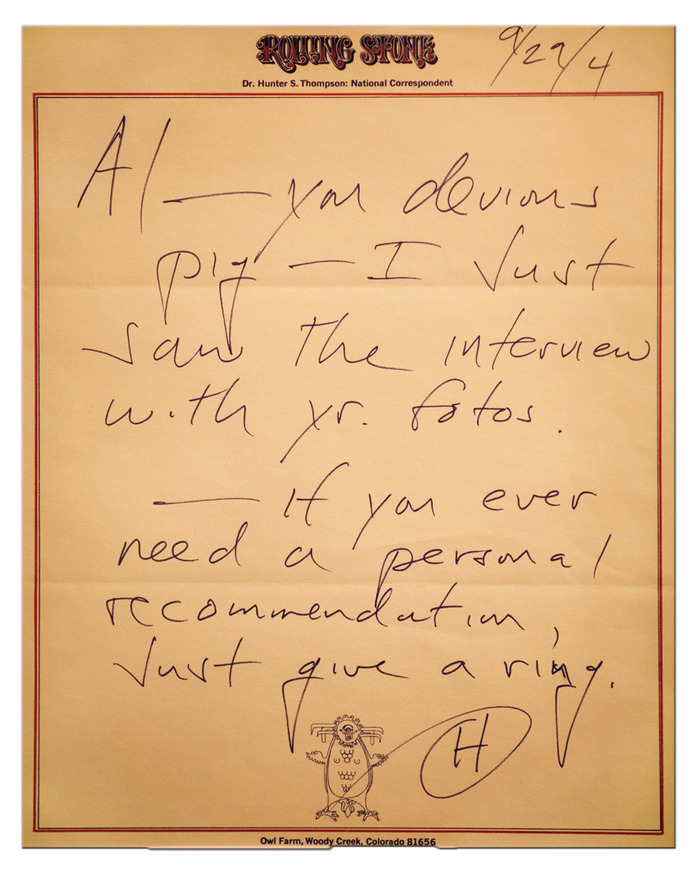 ROLLING STONE
9/29/4
Dr. Hunter S. Thompson: National Correspondent
Al — you devious
pig — I Just
saw the interview
with yr. fotos.
— If you ever
need a personal
recommendation,
Just give a ring.
H
Owl Farm, Woody Creek, Colorado 81656